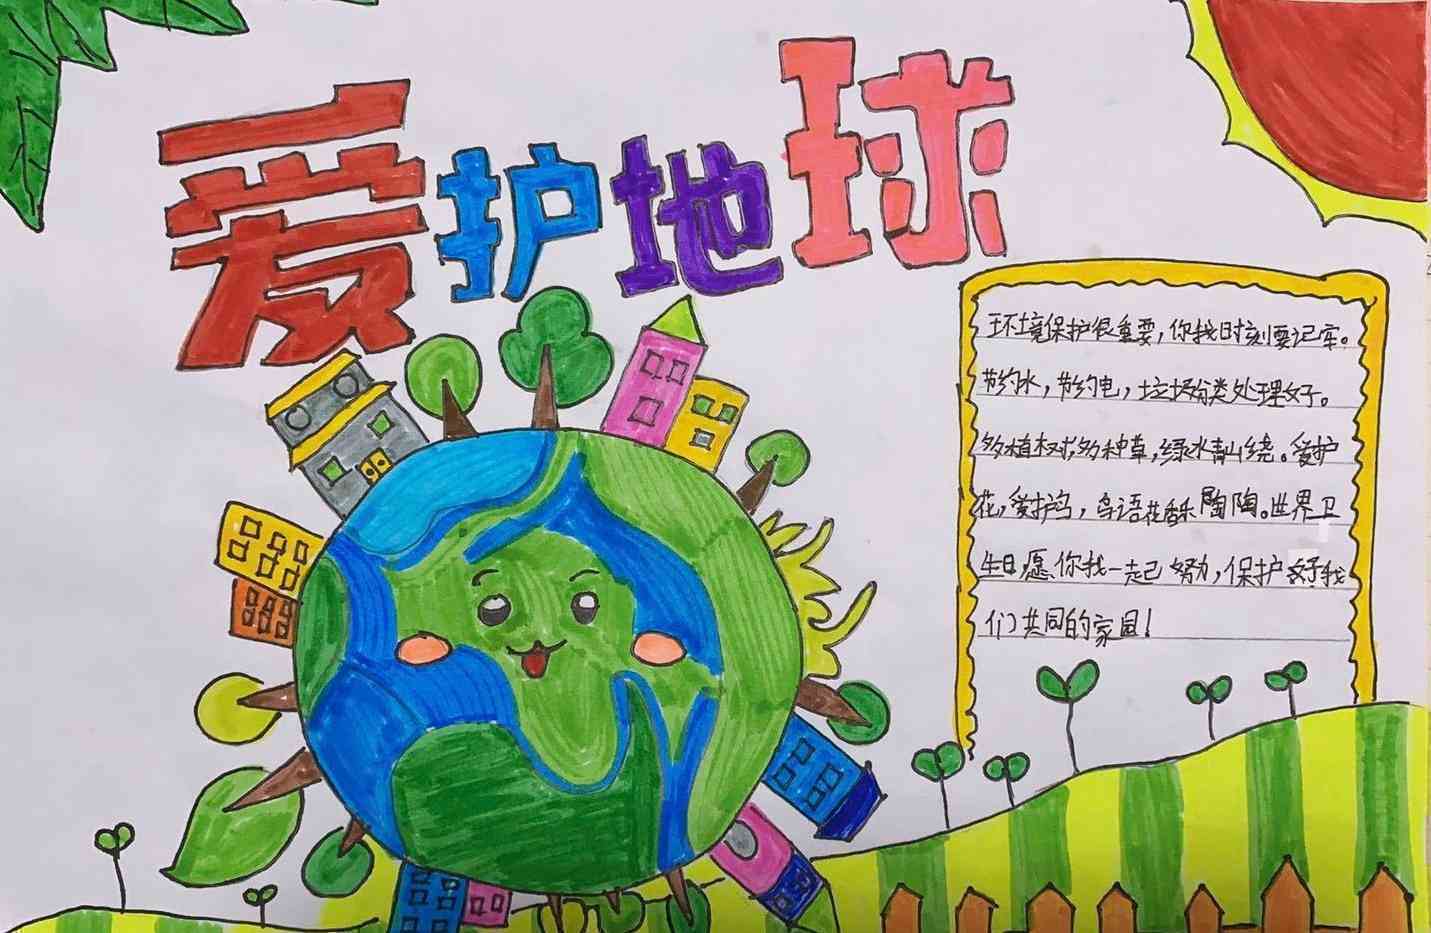 爱护地球
环境保护很重要，你我时刻要记牢。
节约水，节约电，垃圾分类处理好。
多植树，多种草，绿水青山绕。爱护
花，爱护鸟，鸟语花香乐陶陶。世界卫
生日，愿你我一起努力，保护好我
们共同的家园！